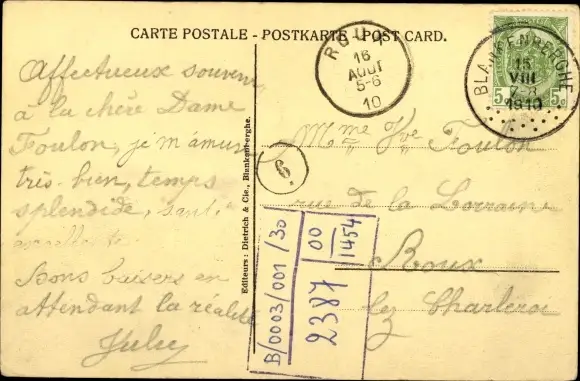 CARTE POSTALE - POSTKARTE - POST CARD.
Affectueux souvenir
à la chère Dame
Foulon, je m'amuse
très bien, temps
splendide, santé
excellente
Bons baisers en
attendant la réalité
ROUX
16
AOUT
5-6
10
BLANKENBERGHE
15
VIII
7-8
1910
5c
5c
6
Editeurs: Dietrich & Cie., Blankenberghe.
Mme Vve Foulon
rue de la Lorraine
Roux
lez Charleroi
B/0003/001/30
2387
00
1454